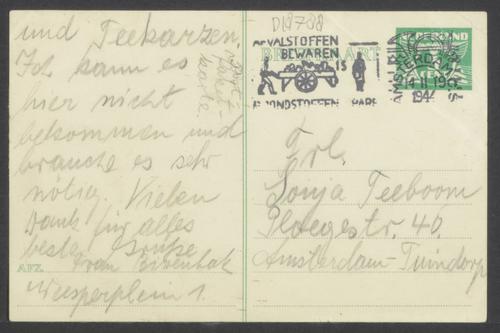 und Teekarzen.
Ich kann es
hier nicht
bekommen und
brauche es sehr
nötig. Vielen
Dank für alles
beste Grüße
Frau
Weesperplein 1.
AFZ.
D19788
AFVALSTOFFEN
BEWAREN
IS
GRONDSTOFFEN
NEDERLAND
AMSTERDAM
14 II
1944
Frl.
Sonja Teeboom
Ploegstr. 40.
Amsterdam-Tuindorp